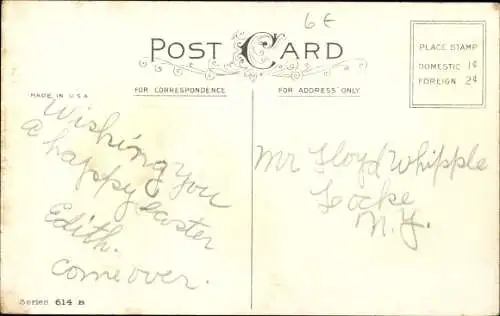 6 €
POST CARD
PLACE STAMP
DOMESTIC 1¢
FOREIGN 2¢
MADE IN U.S.A.
FOR CORRESPONDENCE
FOR ADDRESS ONLY
Wishing you
a happy easter
Edith.
come over.
Mr Floyd Whipple
Locke
N.Y.
Series 614 B